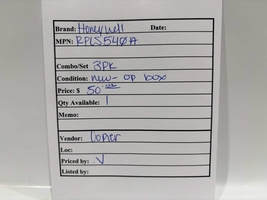 Brand: Honeywell Date:
MPN: RPLS540A
Combo/Set 3PK
Condition: new - op box
Price: $ 50.00
Qty Available: 1
Memo:
Vendor: Copier
Loc:
Priced by: V
Listed by: